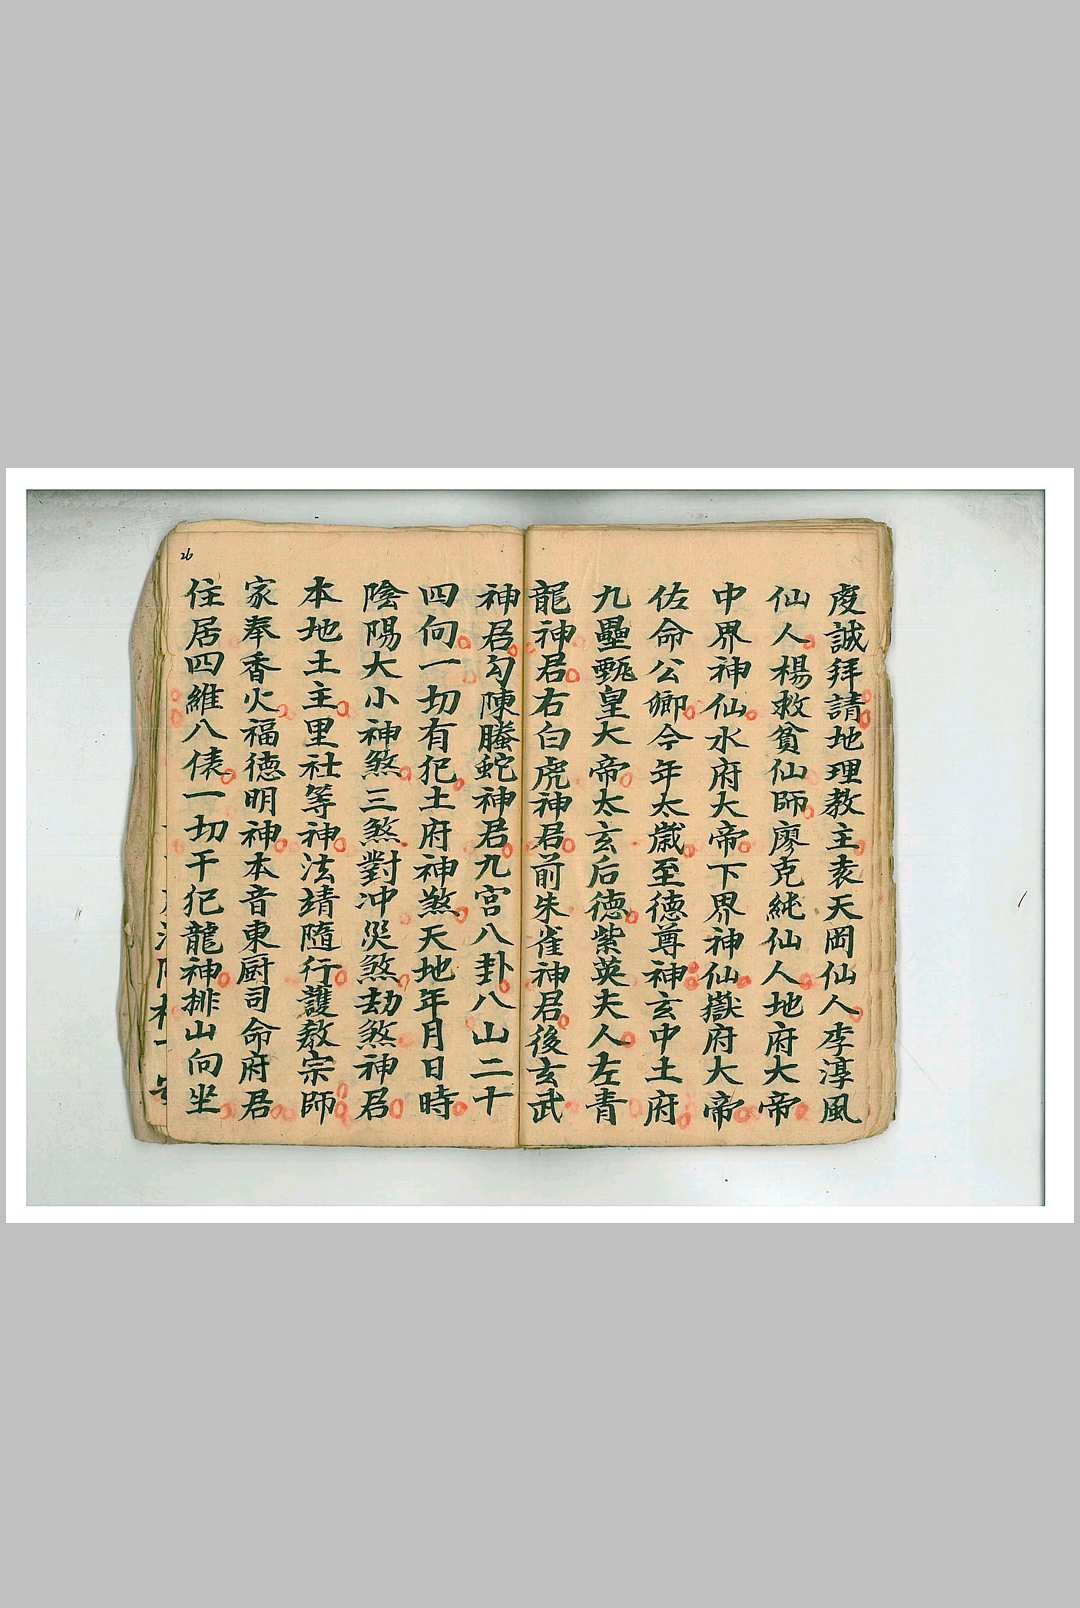 虔誠拜請地理教主袁天岡仙人李淳風
仙人楊救貧仙師廖克純仙人地府大帝
中界神仙水府大帝下界神仙嶽府大帝
佐命公卿今年太歲至德尊神玄中土府
九壘甄皇大帝太玄后德紫英夫人左青
龍神君右白虎神君前朱雀神君後玄武
神君勾陳螣蛇神君九宮八卦八山二十
四向一切有犯土府神煞天地年月日時
陰陽大小神煞三煞對冲災煞劫煞神君
本地土主里社等神法靖隨行護教宗師
家奉香火福德明神本音東厨司命府君
住居四維八俵一切干犯龍神排山向坐
26